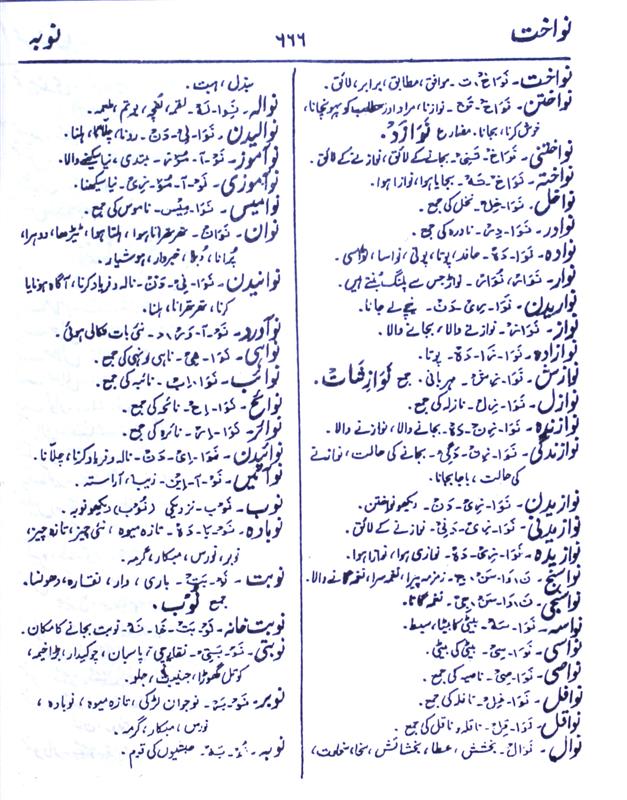 نواخت
۶۶۶
نوبہ
نواخت۔ نَوَاخْ۔ت۔ موافق، مطابق، برابر، لائق۔
نواختن۔ نَوَاخْ۔تَنْ۔ نوازنا، مراد اور مطلب کو پہونچانا،
خوش کرنا، بجانا۔ مضارع نَوَازَدْ۔
نواختنی۔ نَوَاخْ۔تَنِیْ۔ بجانے کے لائق، نوازنے کے لائق۔
نواختہ۔ نَوَاخْ۔تَہْ۔ بجایا ہوا، نوازا ہوا۔
نواخل۔ نَوَا۔خِلْ۔ نخل کی جمع۔
نوادر۔ نَوَا۔دِرْ۔ نادرہ کی جمع۔
نوادہ۔ نَوَا۔دَہْ۔ حافد، پوتا، پوتی، نواسا، نواسی۔
نوار۔ نَوَارْ، نُوَارْ۔ نواڑ جس سے پلنگ بُنتے ہیں۔
نواریدن۔ نَوَا۔رِیْ۔دَنْ۔ نیچے لے جانا۔
نواز۔ نَوَازْ۔ نوازنے والا، بجانے والا۔
نوازادہ۔ نَوَا۔زَا۔دَہْ۔ پوتا۔
نوازش۔ نَوَا۔زِشْ۔ مہربانی۔ جمع نَوَازِشَات۔
نوازل۔ نَوَا۔زِلْ۔ نازلہ کی جمع۔
نوازندہ۔ نَوَا۔زَنْ۔دَہْ۔ بجانے والا، نوازنے والا۔
نوازندگی۔ نَوَا۔زَنْ۔دَگِیْ۔ بجانے کی حالت، نوازنے
کی حالت، باجا بجانا۔
نوازیدن۔ نَوَا۔زِیْ۔دَنْ۔ دیکھو نواختن۔
نوازیدنی۔ نَوَا۔زِیْ۔دَنِیْ۔ نوازنے کے لائق۔
نوازیدہ۔ نَوَا۔زِیْ۔دَہْ۔ نوازی ہوا، نوازا ہوا۔
نواسنج۔ نَ۔وَا۔سَنْ۔جْ۔ زمزمہ پیرا، نغمہ سرا، نغمہ گانے والا۔
نواسنجی۔ نَ۔وَا۔سَنْ۔جِیْ۔ نغمہ گانا۔
نواسہ۔ نَوَا۔سَہْ۔ بیٹی کا بیٹا، سبط۔
نواسی۔ نَوَا۔سِیْ۔ بیٹی کی بیٹی۔
نواصی۔ نَوَا۔صِیْ۔ ناصیہ کی جمع۔
نوافل۔ نَوَا۔فِلْ۔ نافلہ کی جمع۔
نواقل۔ نَوَا۔قِلْ۔ ناقلہ و ناقل کی جمع۔
نوال۔ نَوَالْ۔ بخشش، عطا، بخشائش، سخا، سخاوت،
بذل، ہبت۔
نوالہ۔ نِوَا۔لَہْ۔ لقمہ، لُقمچہ، یوتم، طعمہ۔
نوالیدن۔ نَوَا۔لِیْ۔دَنْ۔ رونا، چلّانا، ہلنا۔
نوآموز۔ نَوْ۔آ۔مُوْزْ۔ مبتدی، نیا سیکھنے والا۔
نوآموزی۔ نَوْ۔آ۔مُوْ۔زِیْ۔ نیا سیکھنا۔
نوامیس۔ نَوَا۔مِیْسْ۔ ناموس کی جمع۔
نوان۔ نَوَانْ۔ تھرتھراتا ہوا، ہلتا ہوا، ٹیڑھا، دوہرا،
پُرانا، دُبلا، خبردار، ہوشیار۔
نوانیدن۔ نَوَا۔نِیْ۔دَنْ۔ نالہ و فریاد کرنا، آگاہ ہونا یا
کرنا، تھرتھرانا، ہلنا۔
نوآورد۔ نَوْ۔آ۔وَرْ۔دْ۔ نئی بات نکالی ہوئی۔
نواہی۔ نَوَا۔ہِیْ۔ ناہی و نہی کی جمع۔
نوائب۔ نَوَا۔اِبْ۔ نائبہ کی جمع۔
نوائح۔ نَوَا۔اِحْ۔ نائحہ کی جمع۔
نوائر۔ نَوَا۔اِرْ۔ نائرہ کی جمع۔
نوائیدن۔ نَوَا۔اِیْ۔دَنْ۔ نالہ و فریاد کرنا، چلّانا۔
نوآئین۔ نَوْ۔آ۔اِیْن۔ زیبا، آراستہ۔
نوب۔ نَوْب۔ نزدیکی (نُوَب) دیکھو نوبہ۔
نوبادہ۔ نَوْ۔بَا۔دَہْ۔ تازہ میوہ، نئی چیز، تازہ چیز،
نوبر، نورس، مبکار، گرمہ۔
نوبت۔ نَوْ۔بَتْ۔ باری، دار، نقارہ، دھونسا۔
جمع نُوَب۔
نوبت خانہ۔ نَوْ۔بَتْ۔خَا۔نَہْ۔ نوبت بجانے کا مکان۔
نوبتی۔ نَوْ۔بَتِیْ۔ نقارچی، پاسبان، چوکیدار، بڑا خیمہ،
کوتل گھوڑا، جنیبت، جلو۔
نوبر۔ نَوْ۔بَرْ۔ نوجوان لڑکی، تازہ میوہ، نوبادہ،
نورس، مبکار، گرمہ۔
نوبہ۔ نُوْ۔بَہْ۔ حبشیوں کی قوم۔